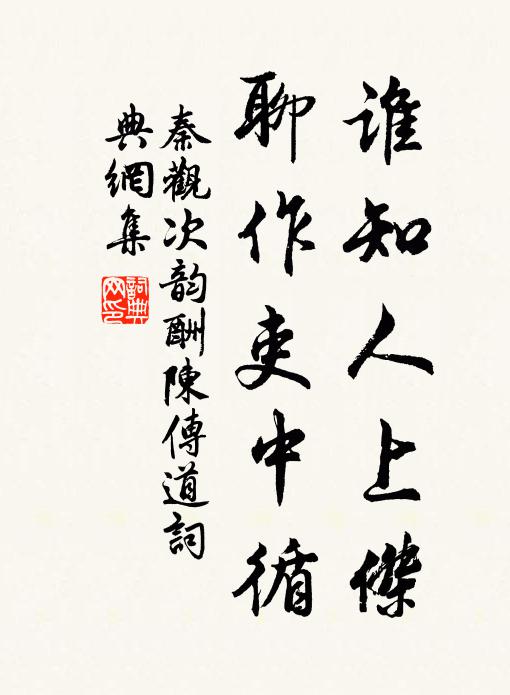 誰知人上傑
聊作吏中循
秦觀次韵酬陳傳道詞
典網集
詞典
网印